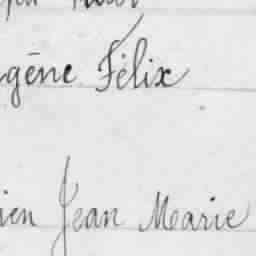 gène Félix
ien Jean Marie